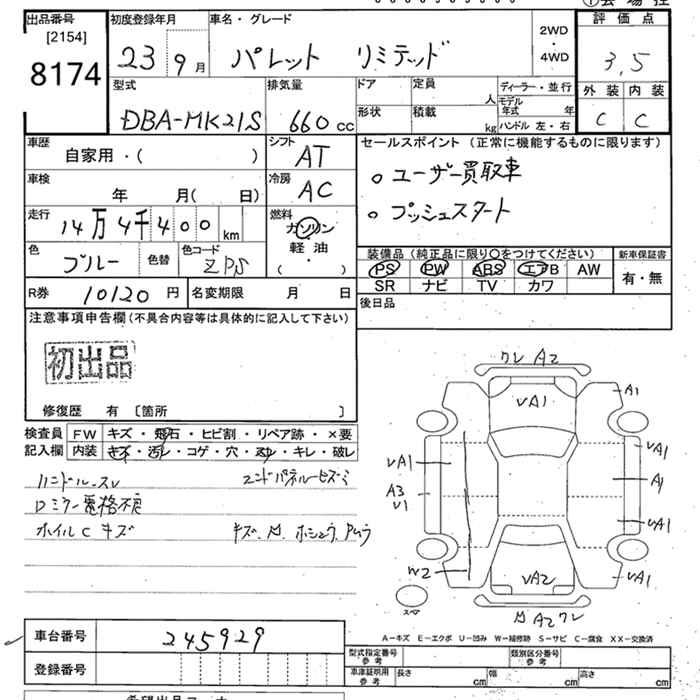 出品番号
[2154]
8174
初度登録年月
23 9月
車名・グレード
パレット リミテッド
2WD
・
4WD
評価点
3.5
外装 内装
C C
型式
DBA-MK21S
排気量
660cc
ドア
定員
人
形状
積載
kg
ディーラー・並行
モデル年式 年
ハンドル 左・右
車歴
自家用・( )
シフト
AT
車検
年 月( 日)
冷房
AC
走行
14万4千400km
燃料
ガソリン
軽油
( ・ )
色
ブルー
色替
色コード
ZPS
R券 10120円
名変期限 月 日
セールスポイント(正常に機能するものに限ります)
○ユーザー買取車
○プッシュスタート
装備品(純正品に限り○をつけてください)
PS PW ABS エアB AW
SR ナビ TV カワ
新車保証書
有・無
後日品
注意事項申告欄(不具合内容等は具体的に記入して下さい)
初出品
修復歴 有〔箇所 〕
検査員記入欄
FW キズ・飛石・ヒビ割・リペア跡・×要
内装 キズ・汚レ・コゲ・穴・スレ・キレ・破レ
ハンドルスレ
Dミラー電格不良
ホイルC キズ
クレ A2
VA1
A1
VA1
VA1
A1
A3
U1
VA1
W2
VA2
VA1
スペア
A2 クレ
A-キズ E-エクボ U-凹み W-補修跡 S-サビ C-腐食 XX-交換済
車台番号 245929
登録番号
型式指定番号
参考
類別区分番号
参考
車庫証明用
参考
長さ cm 幅 cm 高さ cm